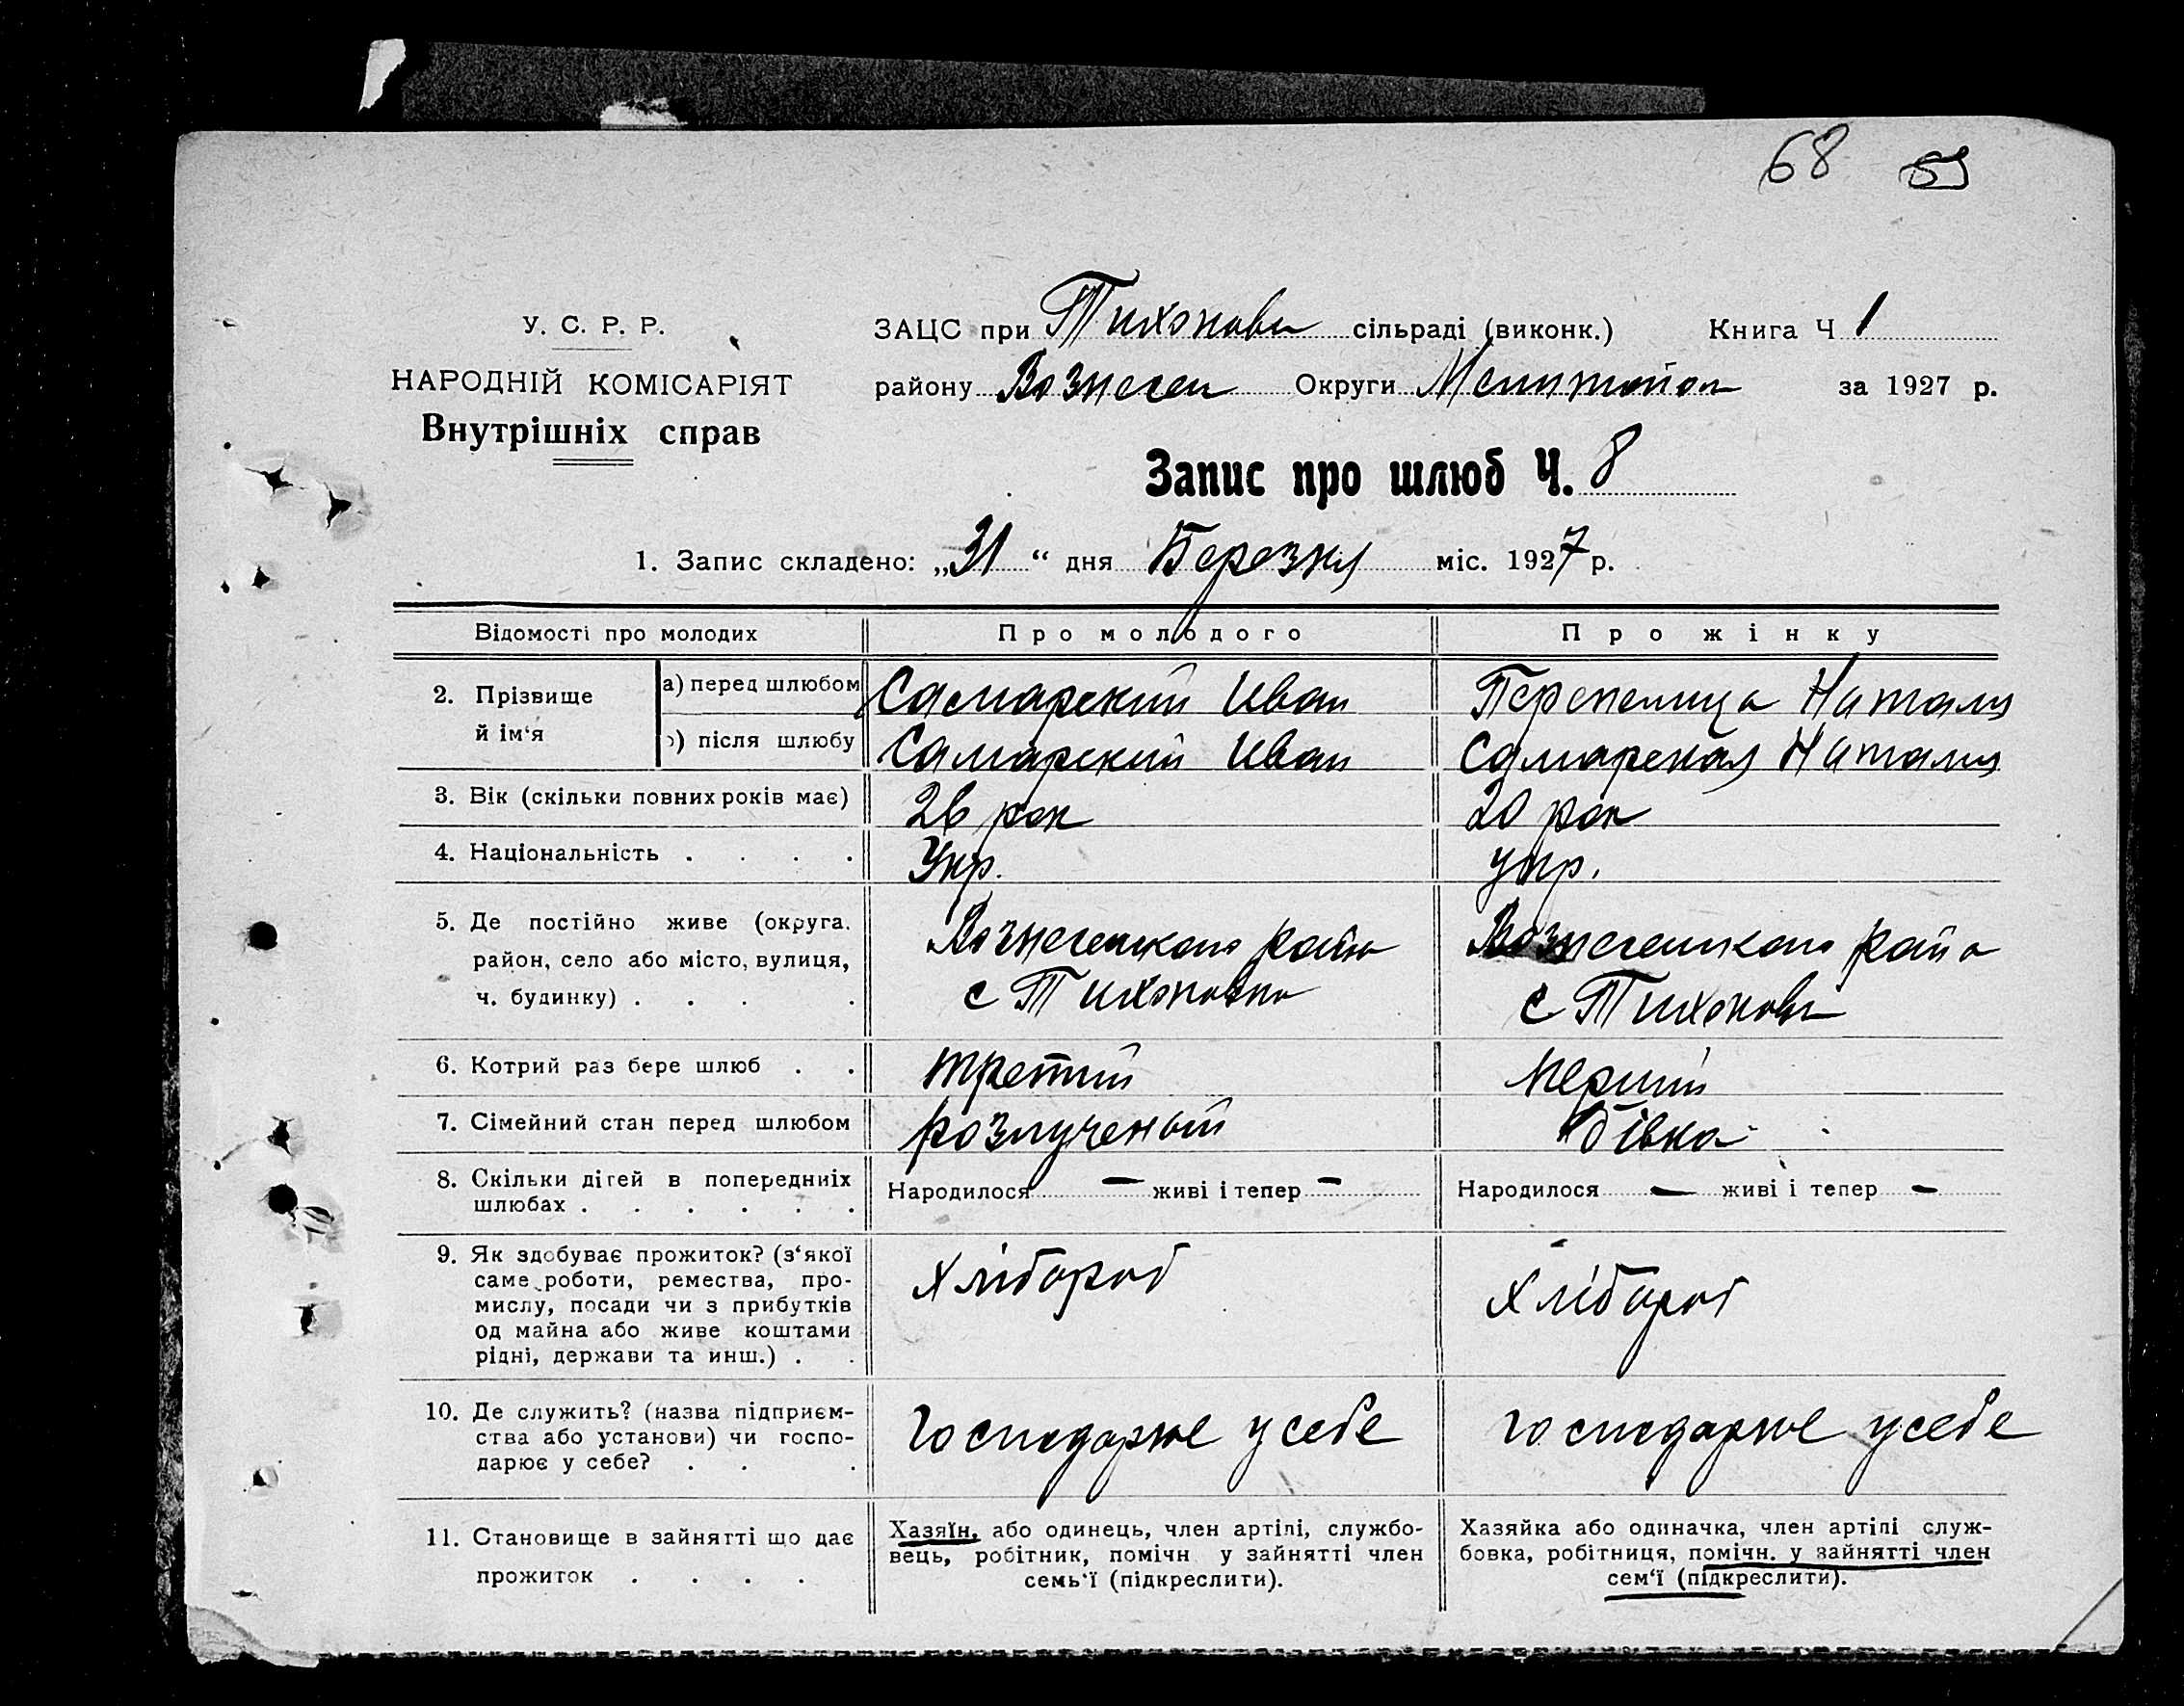 68 59
У. С. Р. Р.
НАРОДНІЙ КОМІСАРІЯТ
Внутрішніх справ
ЗАЦС при Тихонови сільраді (виконк.) Книга Ч 1
району Вознесен Округи Мелитопол за 1927 р.
Запис про шлюб Ч. 8
1. Запис складено: „31“ дня Березня міс. 1927 р.
Відомості про молодих Про молодого Про жінку
2. Прізвище й ім‘я
а) перед шлюбом Самарский Иван Перепелица Наталя
б) після шлюбу Самарский Иван Самарская Наталия
3. Вік (скільки повних років має) 26 рок 20 рок
4. Національність . . . . Укр. укр.
5. Де постійно живе (округа, район, село або місто, вулиця, ч. будинку) . . . .
Вознесенкого району
с Тихоновка
Вознесенкого райо
с Тихоновк
6. Котрий раз бере шлюб . . третий перший
7. Сімейний стан перед шлюбом розлученый дівка
8. Скільки дітей в попередниіх шлюбах . . . . . .
Народилося — живі і тепер —
Народилося — живі і тепер —
9. Як здобуває прожиток? (з‘якої
саме роботи, ремества, про-
мислу, посади чи з прибутків
од майна або живе коштами
рідні, держави та инш.) . .
Хлібороб
Хлібороб
10. Де служить? (назва підприєм-
ства або установи) чи госпо-
дарює у себе? . . .
Господарює у себе
господарює у себе
11. Становище в зайнятті що дає
прожиток . . . .
Хазяїн, або одинець, член артілі, службо-
вець, робітник, помічн у зайнятті член
семь‘ї (підкреслити).
Хазяйка або одиначка, член артілі служ-
бовка, робітниця, помічн. у зайнятті член
сем‘ї (підкреслити).